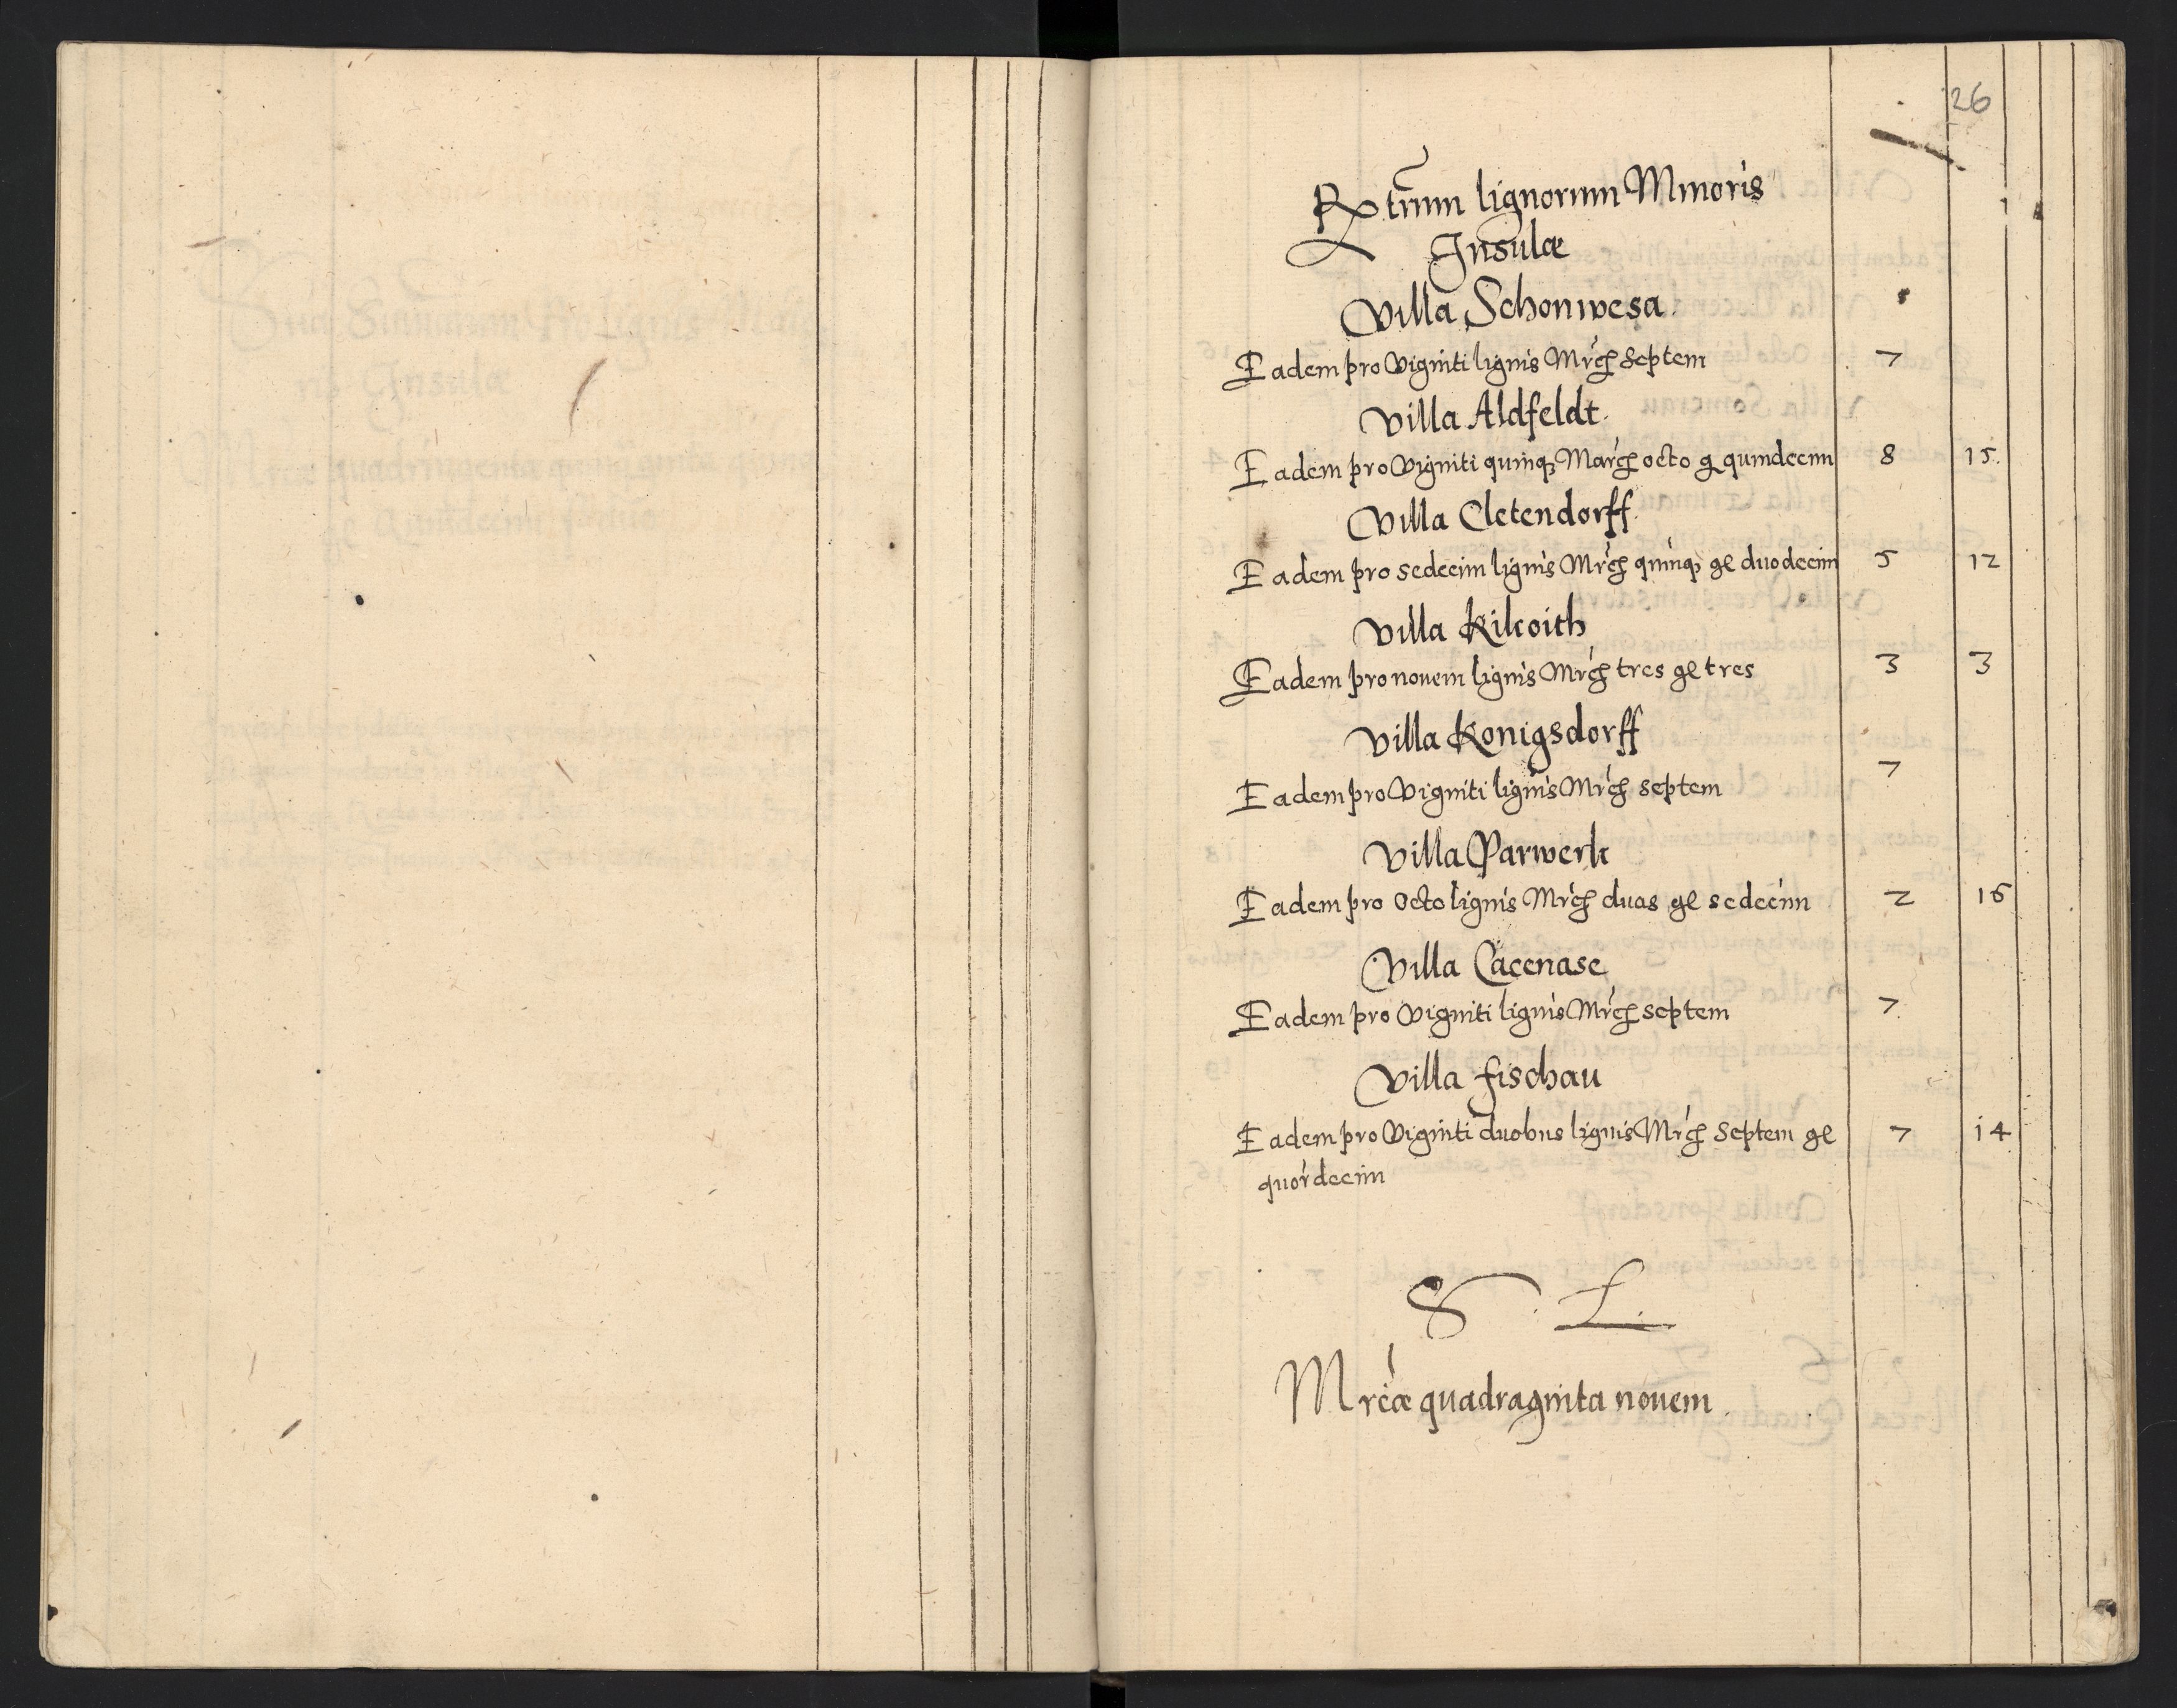 26
Rxtrum lignorum Minoris
Insulæ
Villa Schonwesa
Eadem pro Viginti lignis Mrcs Septem 7
Villa Aldfeldt.
Eadem pro Viginti quinq Marcs octo g quindecim 8 15.
Villa Cletendorff
Eadem pro sedecim lignis Mrcs quinq gl duodecim 5 12
Villa Kilcoith
Eadem pro nouem lignis Mrcs tres gl tres 3 3
Villa Konigsdorff
Eadem pro Viginti lignis Mrcs septem 7
Villa Parwerk
Eadem pro Octo lignis Mrcs duas gl sedecim 2 16
Villa Cacenase
Eadem pro Viginti lignis Mrcs septem 7
Villa fischau
Eadem pro Viginti duobus lignis Mrcs Septem gl 7 14
quordecim
S L.
Mrcæ quadraginta nouem.